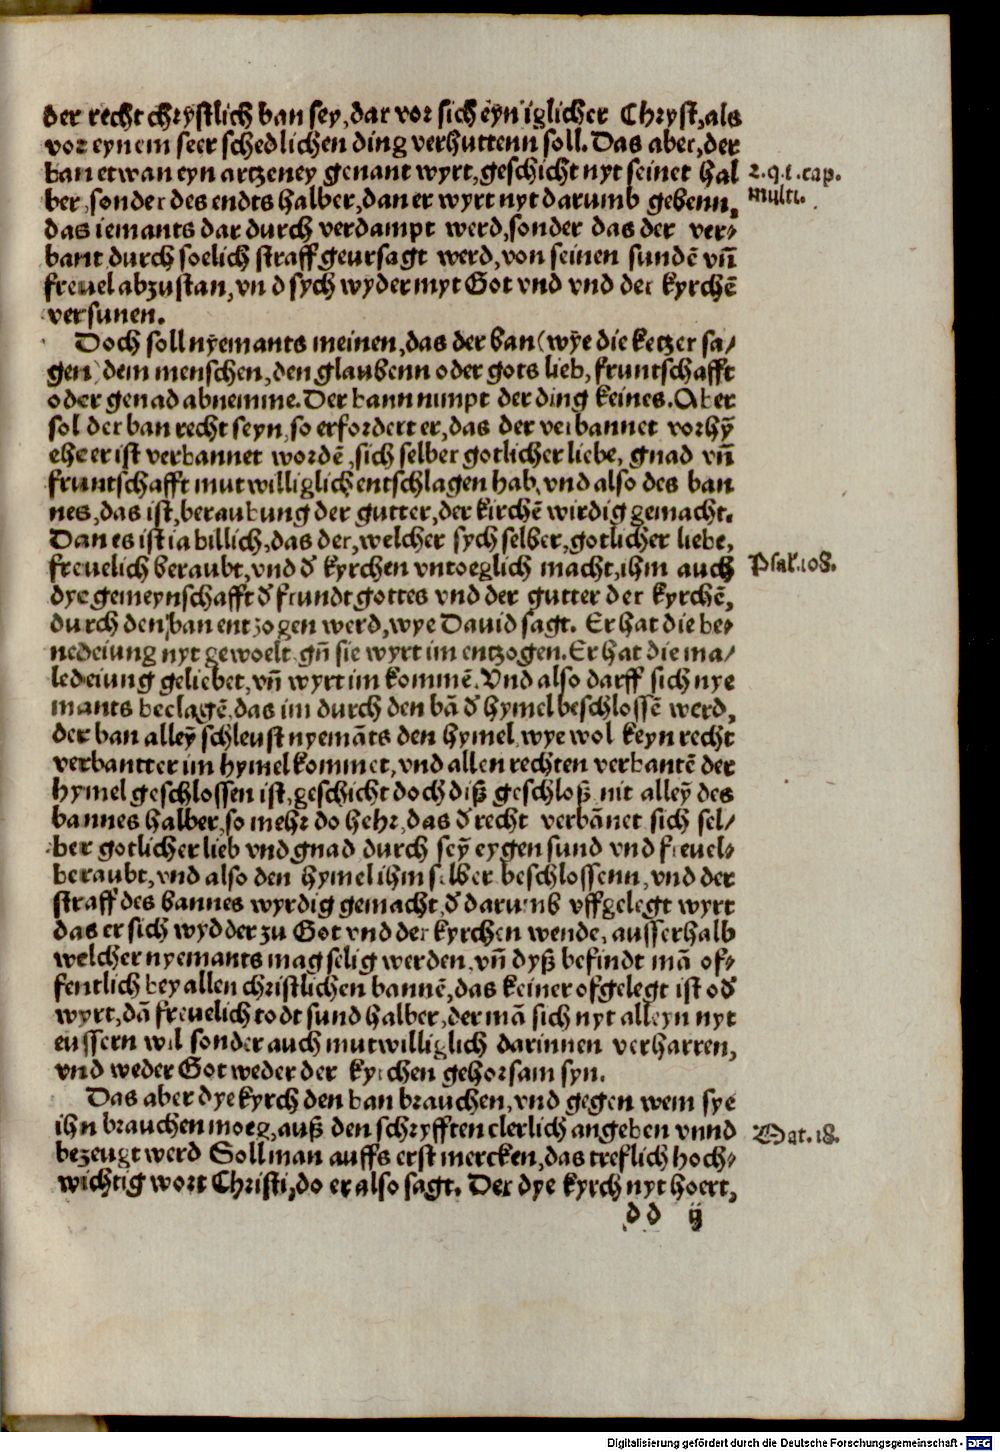 der recht chrystlich ban sey, dar vor sich eyn iglicher Chryst, als
vor eynem seer schedlichen ding verhuttenn soll. Das aber, der
ban etwan eyn artzeney genant wyrt, geschicht nyt seinet hal
ber, sonder des endts halber, dan er wyrt nyt darumb gebenn,
das iemants dar durch verdampt werd, sonder das der ver-
bant durch soelich straff geursagt werd, von seinen sundē vn̄
frevel abzustan, vn d sych wyder myt Got vnd vnd der kyrchē
versunen.
2.q.1.cap.
multi.
Doch soll nyemants meinen, das der ban (wye die ketzer sa/
gen) dem menschen, den glaubenn oder gots lieb, fruntschafft
oder genad abnemme. Der bann nimpt der ding keines. Aber
sol der ban recht seyn, so erfordert er, das der verbannet vorhȳ
ehe er ist verbannet wordē, sich selber gotlicher liebe, gnad vn̄
fruntschafft mutwilliglich entschlagen hab, vnd also des ban
nes, das ist, beraubung der gutter, der kirchē wirdig gemacht.
Dan es ist ia billich, das der, welcher sych selber, gotlicher liebe,
frevelich beraubt, vnd d̄ kyrchen vntoeglich macht, ihm auch
dye gemeynschafft d̄ frundt gottes vnd der gutter der kyrchē,
durch den ban entzogen werd, wye David sagt. Er hat die be-
nedeiung nyt gewoelt gn̄ sie wyrt im entzogen. Er hat die ma/
ledeiung geliebet, vn̄ wyrt im kommē. Vnd also darff sich nye
mants beclagē, das im durch den bā d̄ hymel beschlossē werd,
der ban alleȳ schleust nyemāts den hymel, wye wol keyn recht
verbantter im hymel kommet, vnd allen rechten verbantē der
hymel geschlossen ist, geschicht doch diß geschloß nit alleȳ des
bannes halber, so mehr do hehr, das d̄ recht verbānet sich sel/
ber gotlicher lieb vnd gnad durch seȳ eygen sund vnd frevel-
beraubt, vnd also den hymel ihm selber beschlossenn, vnd der
straff des bannes wyrdig gemacht, d̄ darumb vffgelegt wyrt
das er sich wydder zu Got vnd der kyrchen wende, ausserhalb
welcher nyemants mag selig werden, vn̄ dyß befindt mā of-
fentlich bey allen christlichen bannē, das keiner ofgelegt ist od̄
wyrt, dā frevelich todt sund halber, der mā sich nyt alleyn nyt
eussern wil sonder auch mutwilliglich darinnen verharren,
vnd weder Got weder der kyrchen gehorsam syn.
Psal.108.
Das aber dye kyrch den ban brauchen, vnd gegen wem sye
ihn brauchen moeg, auß den schryfften clerlich angeben vnnd
bezeugt werd Soll man auffs erst mercken, das treflich hoch-
wichtig wort Christi, do er also sagt. Der dye kyrch nyt hoert,
Mat.18.
d d ij
Digitalisierung gefördert durch die Deutsche Forschungsgemeinschaft - DFG